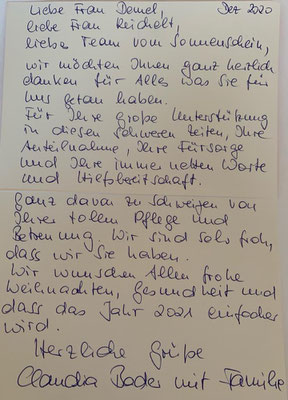 Liebe Frau Demel, Dez 2020
liebe Frau Reichelt,
liebe Team vom Sonnenschein,
wir möchten Ihnen ganz herzlich
danken für Alles was Sie für
uns getan haben.
Für Ihre große Unterstützung
in diesen schweren Zeiten, Ihre
Anteilnahme, Ihre Fürsorge
und Ihre immer netten Worte
und Hilfsbereitschaft.
Ganz davon zu schweigen von
Ihrer tollen Pflege und
Betreuung. Wir sind sehr froh,
dass wir Sie haben.
Wir wünschen Allen frohe
Weihnachten, Gesundheit und
dass das Jahr 2021 einfacher
wird.
Herzliche Grüße
Claudia Bader mit Familie